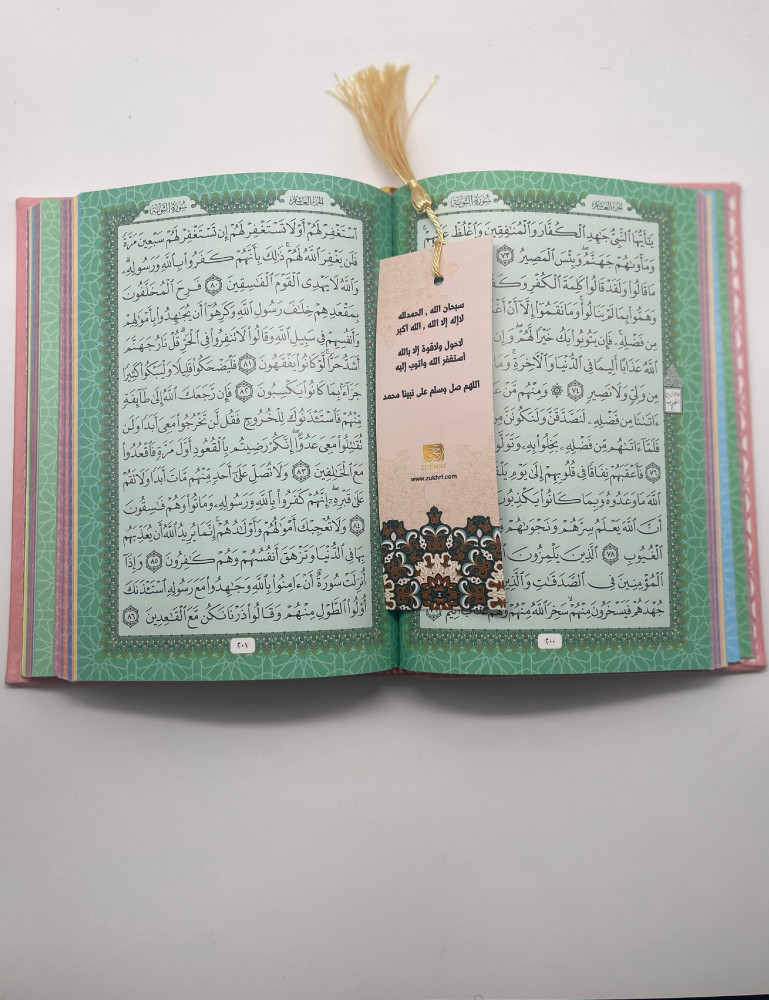 الجزء العاشر
سورة التوبة
يَٰٓأَيُّهَا ٱلنَّبِىُّ جَٰهِدِ ٱلْكُفَّارَ وَٱلْمُنَٰفِقِينَ وَٱغْلُظْ عَلَيْهِمْ
وَمَأْوَىٰهُمْ جَهَنَّمُ وَبِئْسَ ٱلْمَصِيرُ ٧٣
مَا قَالُوا۟ وَلَقَدْ قَالُوا۟ كَلِمَةَ ٱلْكُفْرِ
وَهَمُّوا۟ بِمَا لَمْ يَنَالُوا۟ وَمَا نَقَمُوٓا۟ إِلَّآ أَنْ
مِن فَضْلِهِۦ فَإِن يَتُوبُوا۟ يَكُ خَيْرًا لَّهُمْ وَإِن
ٱللَّهُ عَذَابًا أَلِيمًا فِى ٱلدُّنْيَا وَٱلْءَاخِرَةِ
مِن وَلِىٍّ وَلَا نَصِيرٍ ٧٤ وَمِنْهُم مَّنْ
ءَاتَىٰنَا مِن فَضْلِهِۦ لَنَصَّدَّقَنَّ وَلَنَكُونَنَّ
فَلَمَّآ ءَاتَىٰهُم مِّن فَضْلِهِۦ بَخِلُوا۟ بِهِۦ
٧٦ فَأَعْقَبَهُمْ نِفَاقًا فِى قُلُوبِهِمْ إِلَىٰ يَوْمِ
ٱللَّهَ مَا وَعَدُوهُ وَبِمَا كَانُوا۟ يَكْذِبُونَ
أَنَّ ٱللَّهَ يَعْلَمُ سِرَّهُمْ وَنَجْوَىٰهُمْ
ٱلْغُيُوبِ ٧٨ ٱلَّذِينَ يَلْمِزُونَ
ٱلْمُؤْمِنِينَ فِى ٱلصَّدَقَٰتِ وَٱلَّذِينَ
جُهْدَهُمْ فَيَسْخَرُونَ مِنْهُمْ سَخِرَ ٱللَّهُ مِنْهُمْ وَلَهُمْ عَذَابٌ
٢٠٠
سبحان الله , الحمدلله
لاإله إلا الله , الله اكبر
لاحول ولاقوة إلا بالله
أستغفر الله واتوب إليه
اللهم صل وسلم على نبينا محمد
ZUKHRF
www.zukhrf.com
الجزء العاشر
سورة التوبة
ٱسْتَغْفِرْ لَهُمْ أَوْ لَا تَسْتَغْفِرْ لَهُمْ إِن تَسْتَغْفِرْ لَهُمْ سَبْعِينَ مَرَّةً
فَلَن يَغْفِرَ ٱللَّهُ لَهُمْ ذَٰلِكَ بِأَنَّهُمْ كَفَرُوا۟ بِٱللَّهِ وَرَسُولِهِۦ
وَٱللَّهُ لَا يَهْدِى ٱلْقَوْمَ ٱلْفَٰسِقِينَ ٨٠ فَرِحَ ٱلْمُخَلَّفُونَ
بِمَقْعَدِهِمْ خِلَٰفَ رَسُولِ ٱللَّهِ وَكَرِهُوٓا۟ أَن يُجَٰهِدُوا۟ بِأَمْوَٰلِهِمْ
وَأَنفُسِهِمْ فِى سَبِيلِ ٱللَّهِ وَقَالُوا۟ لَا تَنفِرُوا۟ فِى ٱلْحَرِّ قُلْ نَارُ جَهَنَّمَ
أَشَدُّ حَرًّا لَّوْ كَانُوا۟ يَفْقَهُونَ ٨١ فَلْيَضْحَكُوا۟ قَلِيلًا وَلْيَبْكُوا۟ كَثِيرًا
جَزَآءًۢ بِمَا كَانُوا۟ يَكْسِبُونَ ٨٢ فَإِن رَّجَعَكَ ٱللَّهُ إِلَىٰ طَآئِفَةٍ
مِّنْهُمْ فَٱسْتَـْٔذَنُوكَ لِلْخُرُوجِ فَقُل لَّن تَخْرُجُوا۟ مَعِىَ أَبَدًا وَلَن
تُقَٰتِلُوا۟ مَعِىَ عَدُوًّا إِنَّكُمْ رَضِيتُم بِٱلْقُعُودِ أَوَّلَ مَرَّةٍ فَٱقْعُدُوا۟
مَعَ ٱلْخَٰلِفِينَ ٨٣ وَلَا تُصَلِّ عَلَىٰٓ أَحَدٍ مِّنْهُم مَّاتَ أَبَدًا وَلَا تَقُمْ
عَلَىٰ قَبْرِهِۦٓ إِنَّهُمْ كَفَرُوا۟ بِٱللَّهِ وَرَسُولِهِۦ وَمَاتُوا۟ وَهُمْ فَٰسِقُونَ
٨٤ وَلَا تُعْجِبْكَ أَمْوَٰلُهُمْ وَأَوْلَٰدُهُمْ إِنَّمَا يُرِيدُ ٱللَّهُ أَن يُعَذِّبَهُم
بِهَا فِى ٱلدُّنْيَا وَتَزْهَقَ أَنفُسُهُمْ وَهُمْ كَٰفِرُونَ ٨٥ وَإِذَآ
أُنزِلَتْ سُورَةٌ أَنْ ءَامِنُوا۟ بِٱللَّهِ وَجَٰهِدُوا۟ مَعَ رَسُولِهِ ٱسْتَـْٔذَنَكَ
أُو۟لُوا۟ ٱلطَّوْلِ مِنْهُمْ وَقَالُوا۟ ذَرْنَا نَكُن مَّعَ ٱلْقَٰعِدِينَ ٨٦
٢٠١